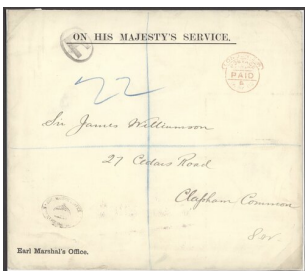 ON HIS MAJESTY'S SERVICE.
R
PAID
22
Sir James Williamson
27 Cedars Road
Clapham Common
S.W.
Earl Marshal's Office.